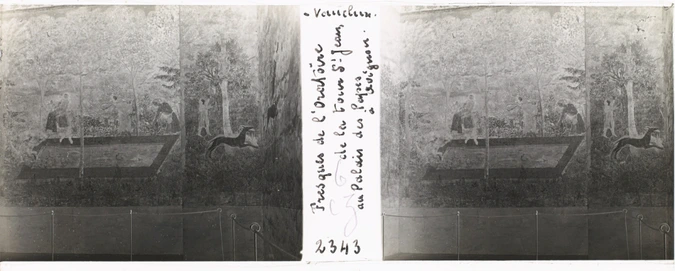 - Vaucluse.
Fresques de l'Oratoire
de la tour St Jean,
au Palais des Papes
à Avignon.
2343